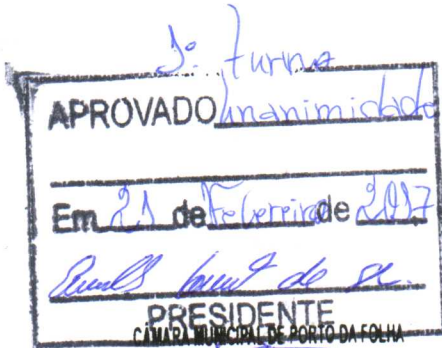 1º turno
APROVADO unanimidade
Em 21 de Fevereiro de 2017
PRESIDENTE
CÂMARA MUNICIPAL DE PORTO DA FOLHA